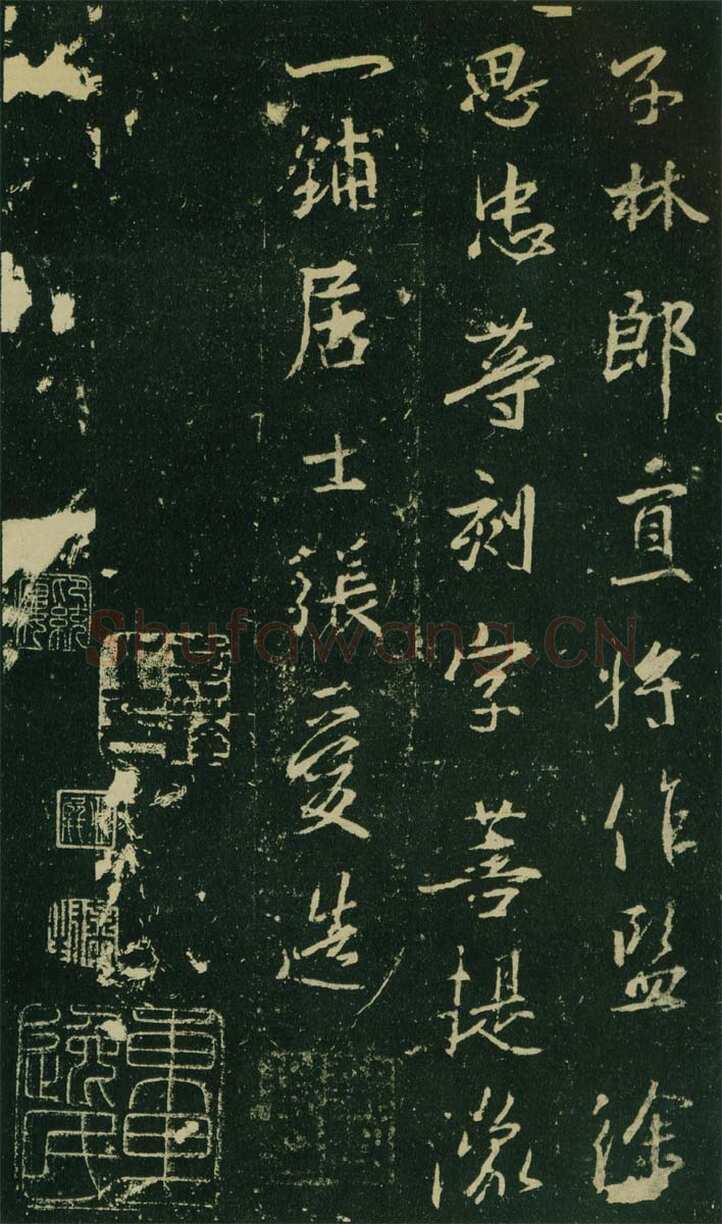 子林郎直将作監徐
思忠等刻字菩提像
一鋪居士張愛造
Shufawang.CN